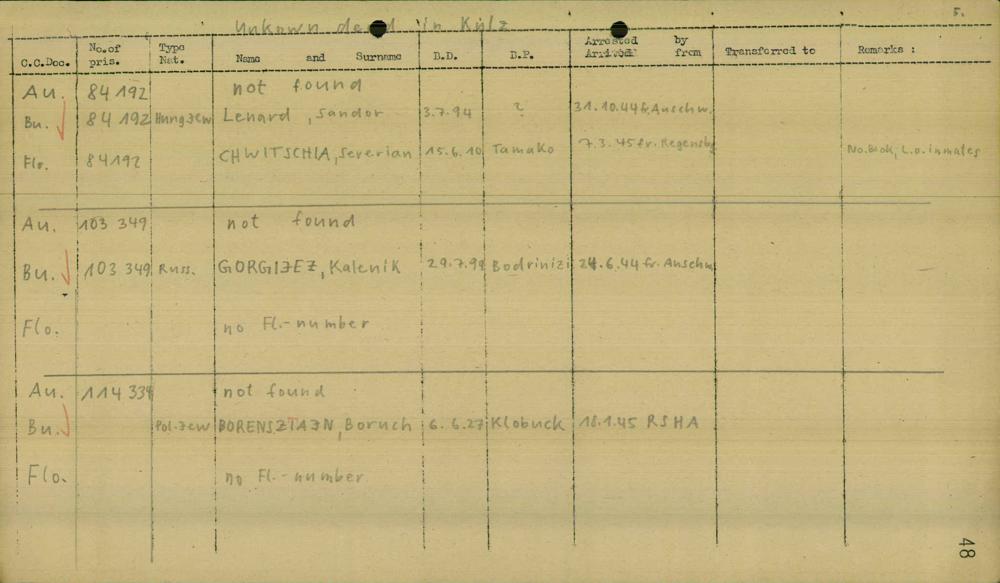 5.
Unknown dead in Külz
C.C.Doc. No. of pris. Type Nat. Name and Surname B.D. B.P. Arrested Arrived by from Transferred to Remarks :
Au. 84 192 not found
Bu. 84 192 Hung Jew Lenard, Sandor 3.7.94 ? 31.10.44 fr. Auschw.
Flo. 84192 CHWITSCHIA, Severian 15.6.10 Tamako 7.3.45 fr. Regensbg No. Blok, L.o. inmates
Au. 103 349 not found
Bu. 103 349 Russ. GORGIJEZ, Kalenik 29.7.99 Bodrinizi 24.6.44 fr. Auschw
Flo. no Fl.-number
Au. 114 334 not found
Bu. Pol-Jew BORENSZTAJN, Boruch 6.6.27 Klobuck 18.1.45 RSHA
Flo. no Fl.-number
48